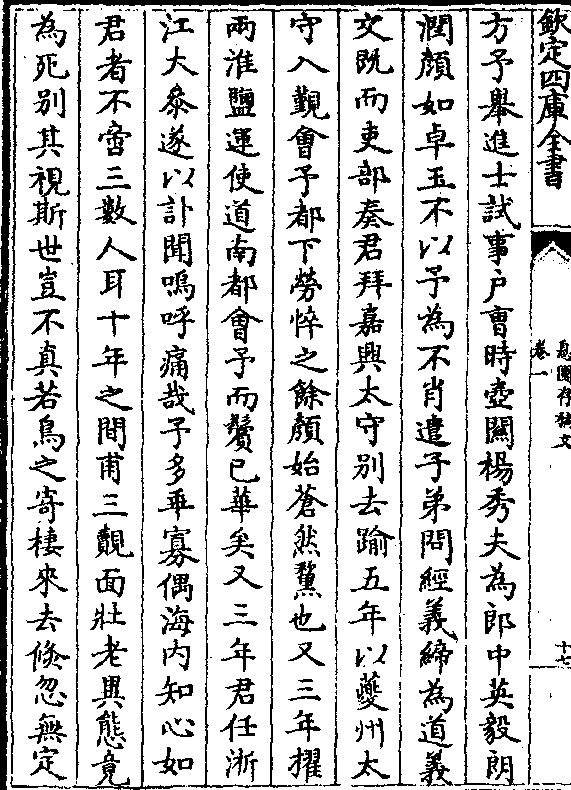 欽定四庫全書
息園存稿文
卷一
十七
方予舉進士試事户曹時壺關楊秀夫為郎中英毅朗
潤顔如卓玉不以予為不肖遣子弟問經義締為道義
文既而吏部奏君拜嘉興太守别去踰五年以夔州太
守入覲會予都下勞悴之餘顔始蒼然黧也又三年擢
兩淮鹽運使道南都會予而鬢已華矣又三年君任浙
江大叅遂以訃聞嗚呼痛哉予多乖寡偶海内知心如
君者不啻三數人耳十年之間甫三覿面壯老異態竟
為死别其視斯世豈不真若鳥之寄棲來去倏忽無定